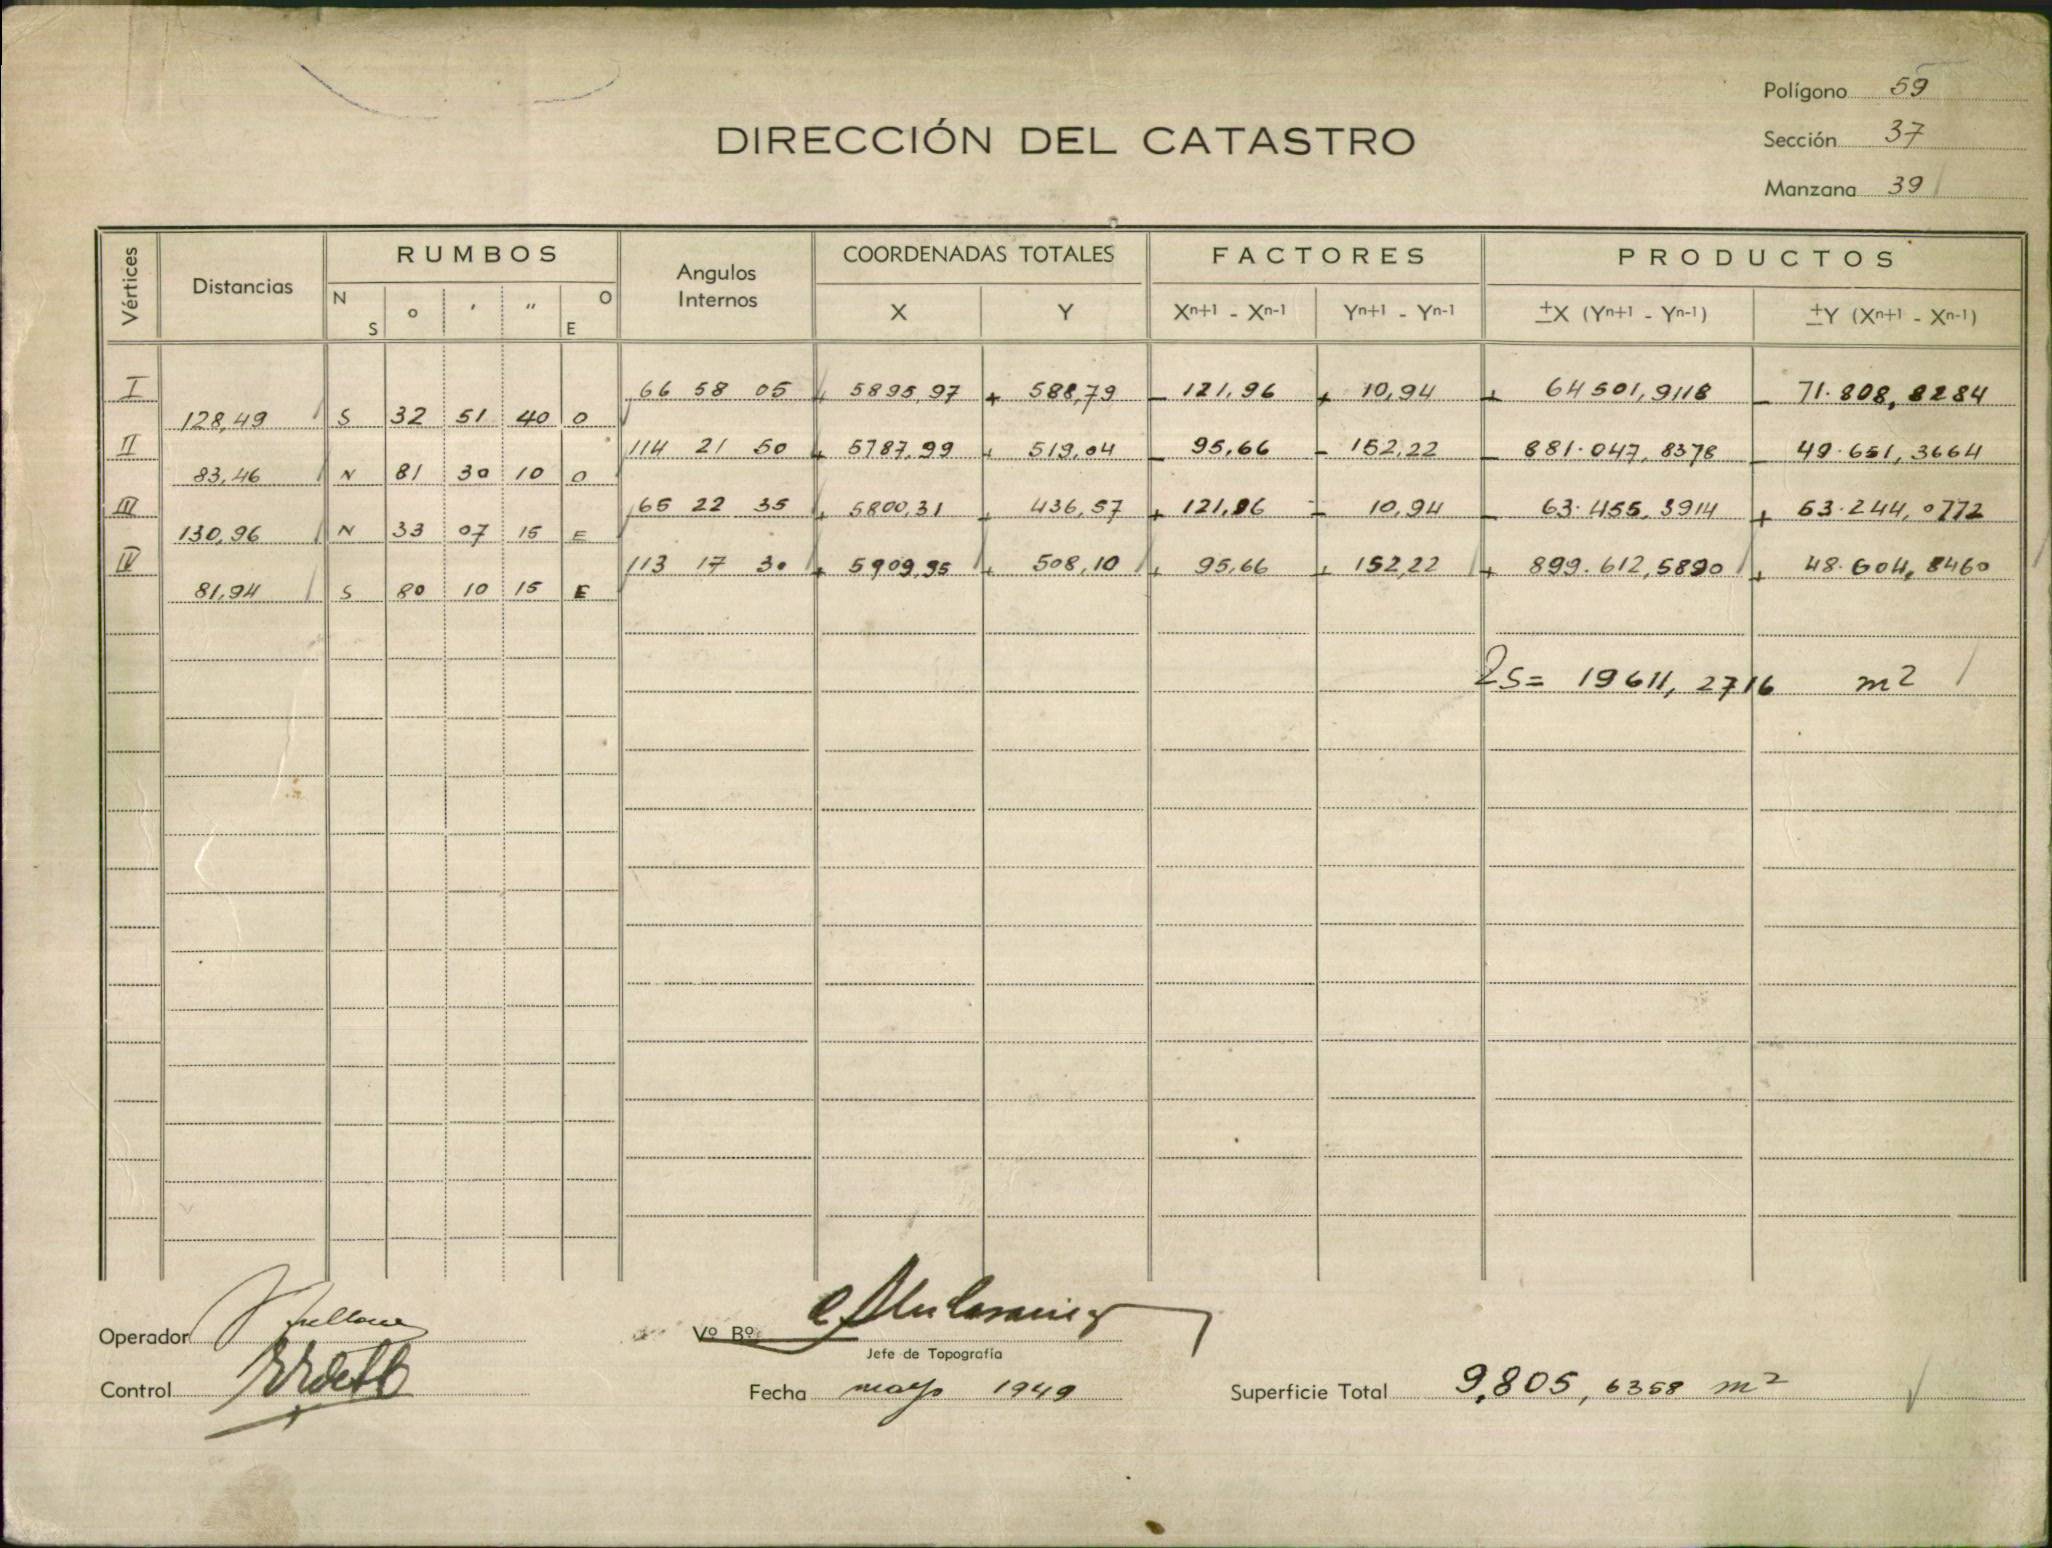 Polígono 59
DIRECCIÓN DEL CATASTRO
Sección 37
Manzana 39
Vértices Distancias RUMBOS Angulos Internos COORDENADAS TOTALES FACTORES PRODUCTOS
N S ° ' " O E X Y Xn+1 - Xn-1 Yn+1 - Yn-1 ±X (Yn+1 - Yn-1) ±Y (Xn+1 - Xn-1)
I 66 58 05 + 5895,97 + 588,79 - 121,96 + 10,94 + 64501,9118 - 71.808,8284
128,49 S 32 51 40 O
II 114 21 50 + 5787,99 + 519,04 - 95,66 - 152,22 - 881.047,8378 - 49.651,3664
83,46 N 81 30 10 O
III 65 22 35 + 5800,31 + 436,57 + 121,96 - 10,94 - 63.455,3914 + 53.244,0772
130,96 N 33 07 15 E
IV 113 17 30 + 5909,95 + 508,10 + 95,66 + 152,22 + 899.612,5890 + 48.604,8460
81,94 S 80 10 15 E
2S= 19611,2716 m2
Operador
Vº Bº
Jefe de Topografía
Control
Fecha mayo 1949
Superficie Total 9,805,6358 m2